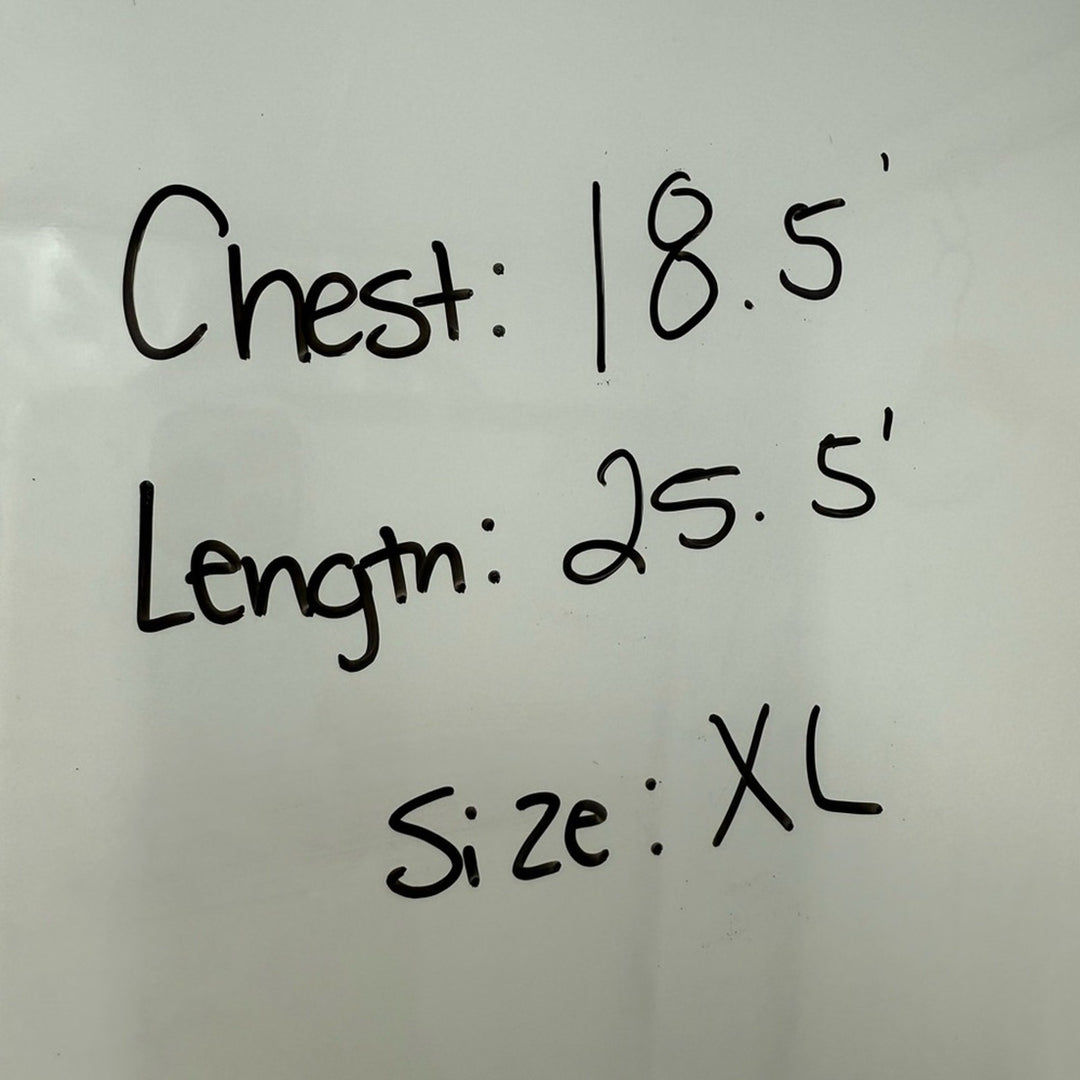 Chest: 18.5'
Length: 25.5'
Size: XL